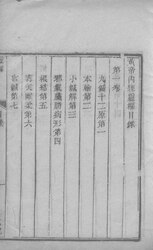 黃帝內經靈樞目錄
第一卷
九鍼十二原第一
本輸第二
小鍼解第三
邪氣臟腑病形第四
根結第五
壽夭剛柔第六
官鍼第七